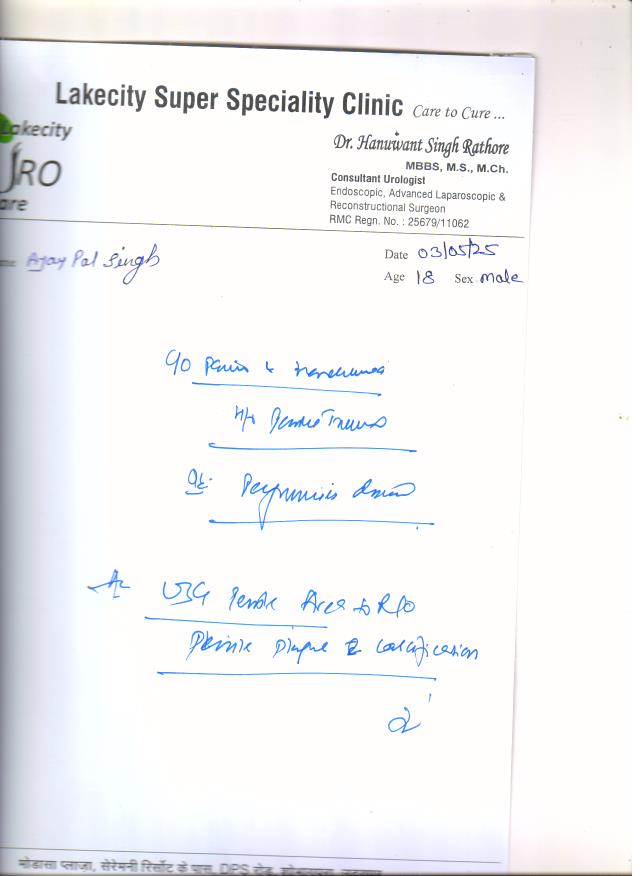 Lakecity Super Speciality Clinic Care to Cure ...
Lakecity
URO
are
Dr. Hanuwant Singh Rathore
MBBS, M.S., M.Ch.
Consultant Urologist
Endoscopic, Advanced Laparoscopic &
Reconstructional Surgeon
RMC Regn. No. : 25679/11062
Ajay Pal Singh
Date 03/05/25
Age 18 Sex male
C/O Pain &
H/o Penile
Peyronie's
USG Penile Area to R/o
Penile Plaque & Calcification
मोडासा प्लाज़ा, सेरेमनी रिसॉर्ट के पास, DPS रोड,